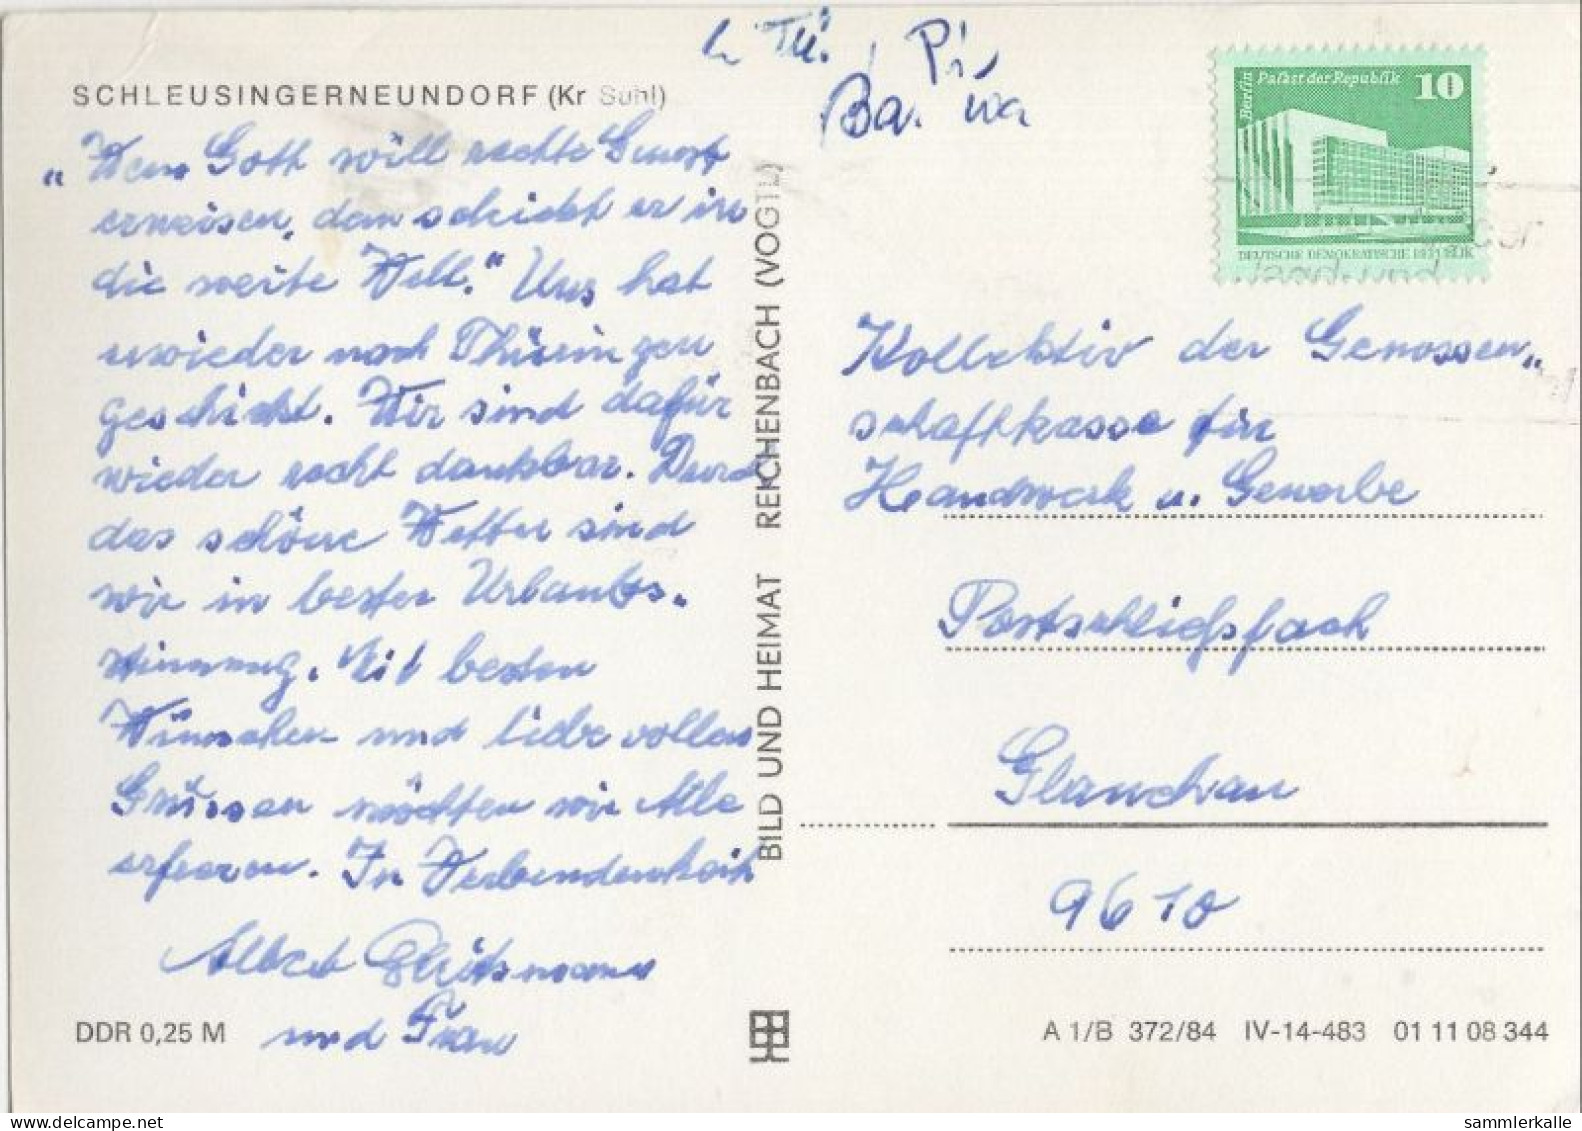 SCHLEUSINGERNEUNDORF (Kr Suhl)
„Wem Gott will rechte Gunst
erweisen, den schickt er in
die weite Welt." Uns hat
er wieder nach Thüringen
geschickt. Wir sind dafür
wieder recht dankbar. Durch
das schöne Wetter sind
wir in bester Urlaubs-
stimmung. Mit besten
Wünschen und liebevollen
Grüssen möchten wir Alle
erfreuen. In Verbundenheit
Albert
und Frau
DDR 0,25 M
BILD UND HEIMAT REICHENBACH (VOGTL)
Tü. Pi
Ba. wa
Berlin Palast der Republik 10
DEUTSCHE DEMOKRATISCHE REPUBLIK
Kollektiv der Genossen„
schaftkasse für
Handwerk u. Gewerbe
Postschließfach
Glauchau
9610
A 1/B 372/84 IV-14-483 01 11 08 344
sammlerkalle